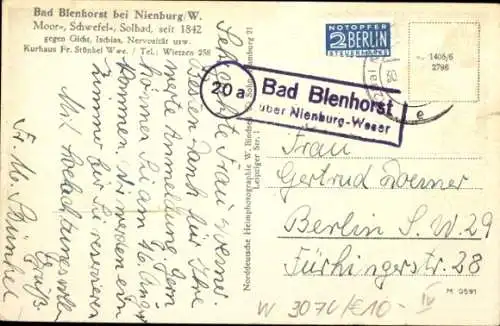 Bad Blenhorst bei Nienburg/W.
Moor-, Schwefel-, Solbad, seit 1842
gegen Gicht, Ischias, Nervosität usw.
Kurhaus Fr. Stünkel Wwe. / Tel.: Wietzen 258
NOTOPFER
2 BERLIN
STEUERMARKE
1406/6
2796
20a
Bad Blenhorst
über Nienburg-Weser
Sehr geehrte Frau Werner.
Besten Dank für Ihre
werte Anmeldung. Gern
können Sie am 16. Aug.
kommen, wir werden ein
Zimmer für Sie reservieren
Mit hochachtungsvollem
Gruß
Fr. M. Stünkel
Norddeutsche Heimatphotographie W.
Leipziger Str. 1
Frau
Gertrud Werner
Berlin S.W. 29
Fürhingerstr. 28
M 0591
W 3074/€10-
IV